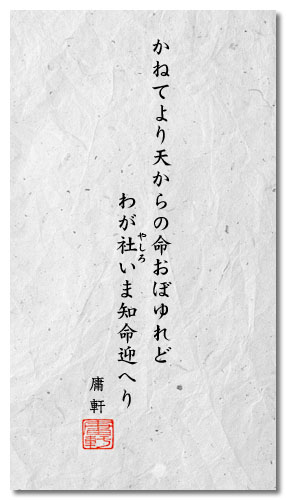 かねてより天からの命おぼゆれど
わが社いま知命迎へり
やしろ
庸軒
庸軒